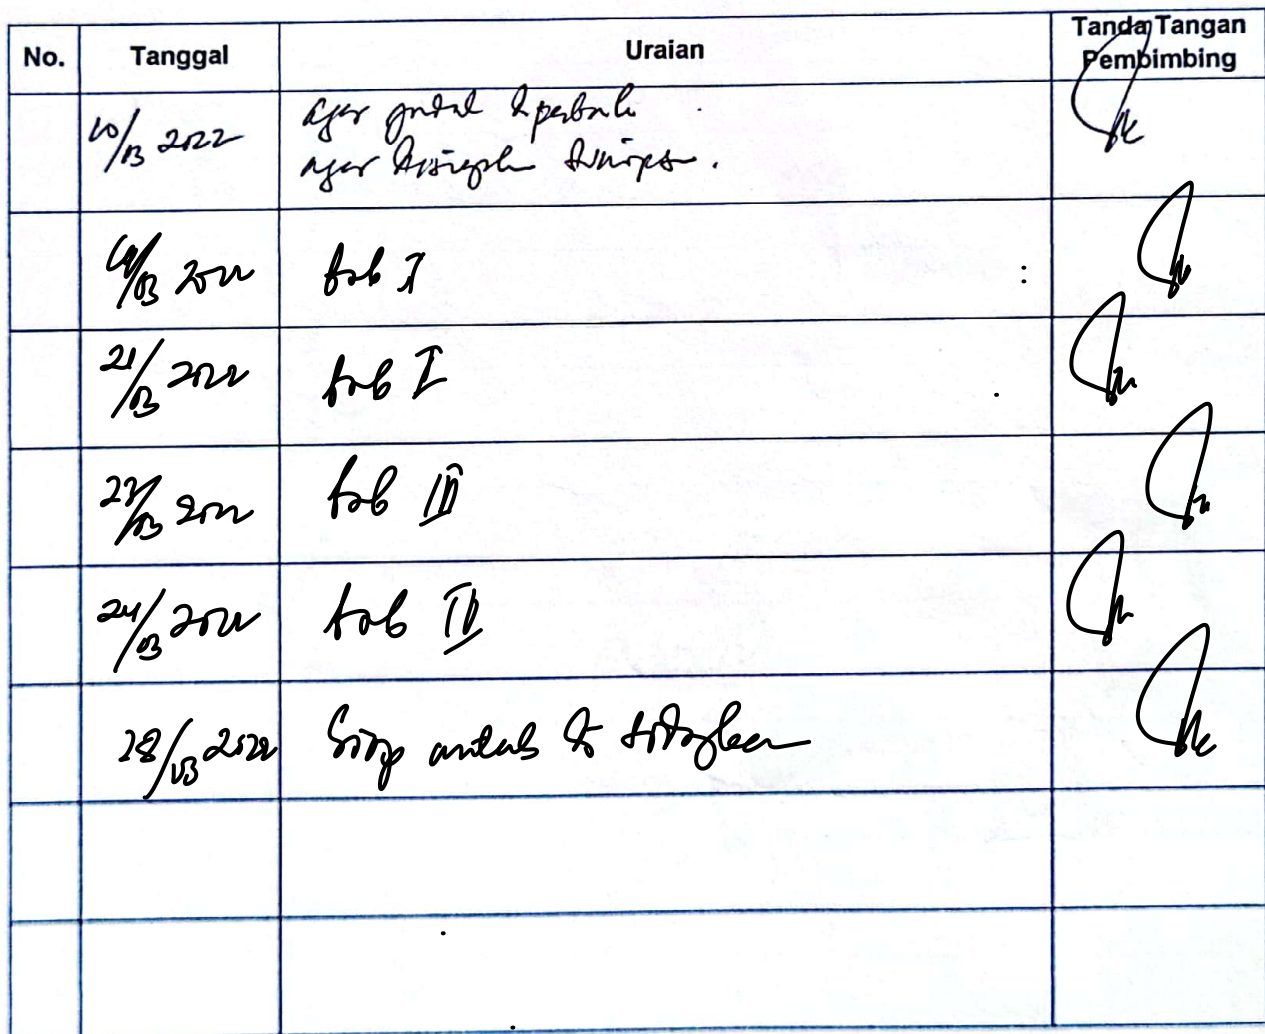 No. Tanggal Uraian Tanda Tangan
Pembimbing
10/03 2022 agar judul diperbaiki
agar
/03 2022 bab I
21/03 2022 bab I
23/03 2022 bab III
24/03 2022 bab IV
28/03 2022 Siap untuk di sidangkan